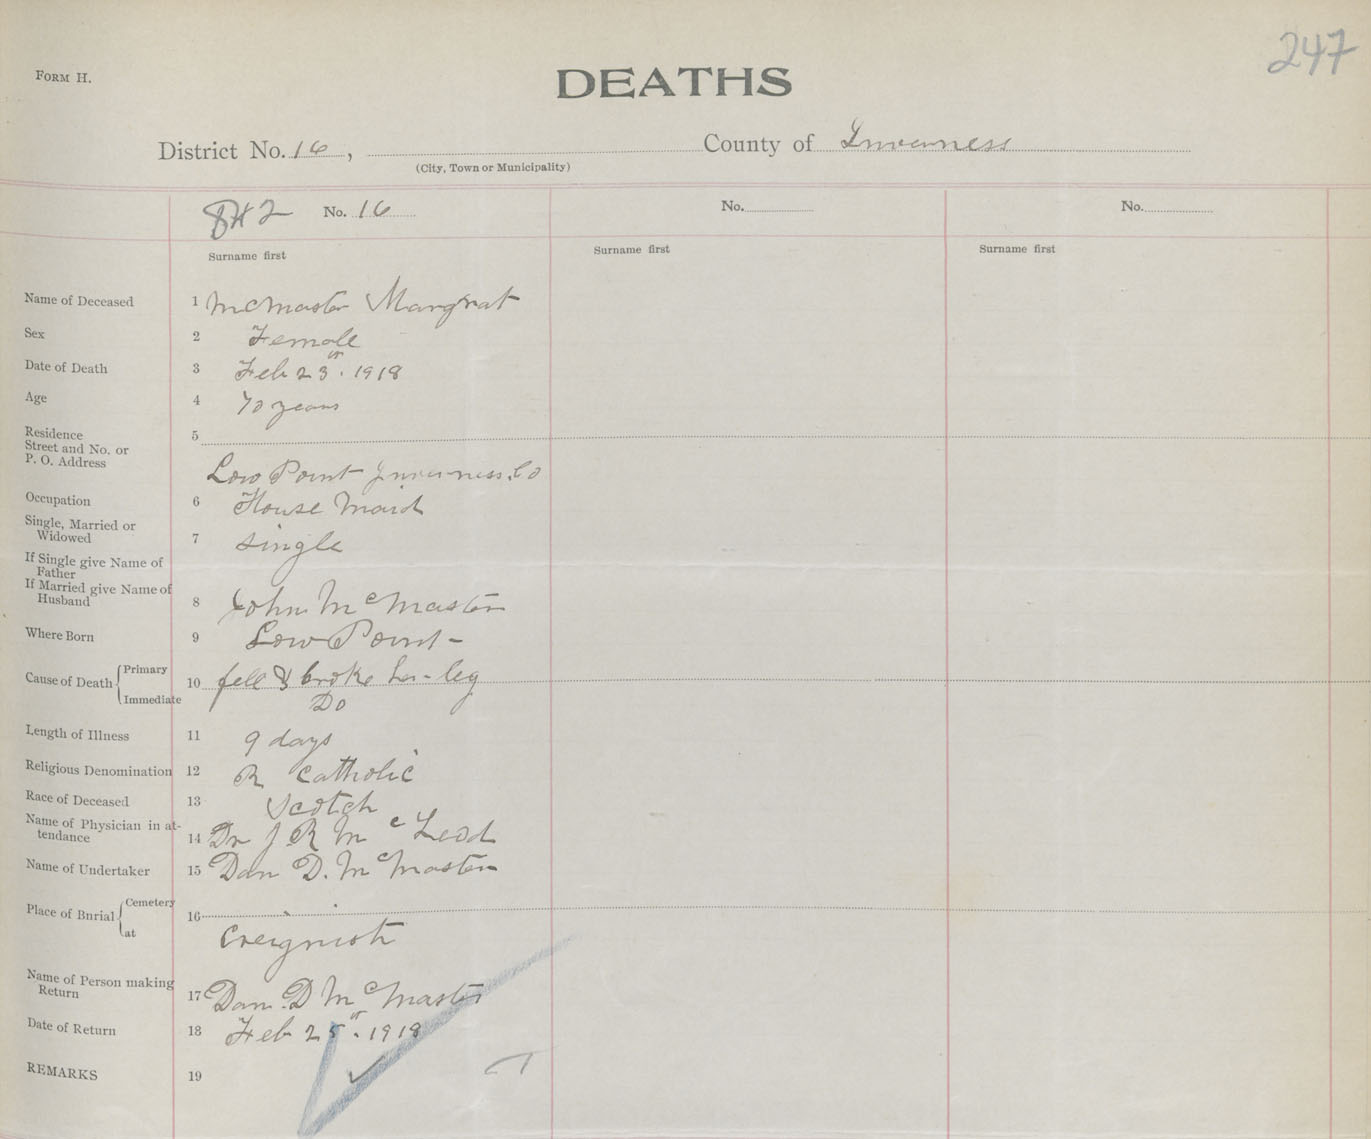 247
FORM H.
DEATHS
District No. 16, County of Inverness
(City, Town or Municipality)
842 No. 16 No. No.
Surname first Surname first Surname first
Name of Deceased 1 McMaster Margrat
Sex 2 Female
Date of Death 3 Feb 23rd. 1918
Age 4 70 years
Residence 5
Street and No. or
P. O. Address
Low Point Inverness. Co
Occupation 6 House Maid
Single, Married or
Widowed 7 single
If Single give Name of
Father
If Married give Name of
Husband 8 John McMaster
Where Born 9 Low Point -
Cause of Death Primary 10 fell & broke her leg
Immediate Do
Length of Illness 11 9 days
Religious Denomination 12 R Catholic
Race of Deceased 13 Scotch
Name of Physician in at-
tendance 14 Dr J R McLeod
Name of Undertaker 15 Dan D. McMaster
Place of Burial Cemetery 16
at Creignish
Name of Person making
Return 17 Dan. D McMaster
Date of Return 18 Feb 25th. 1918
REMARKS 19